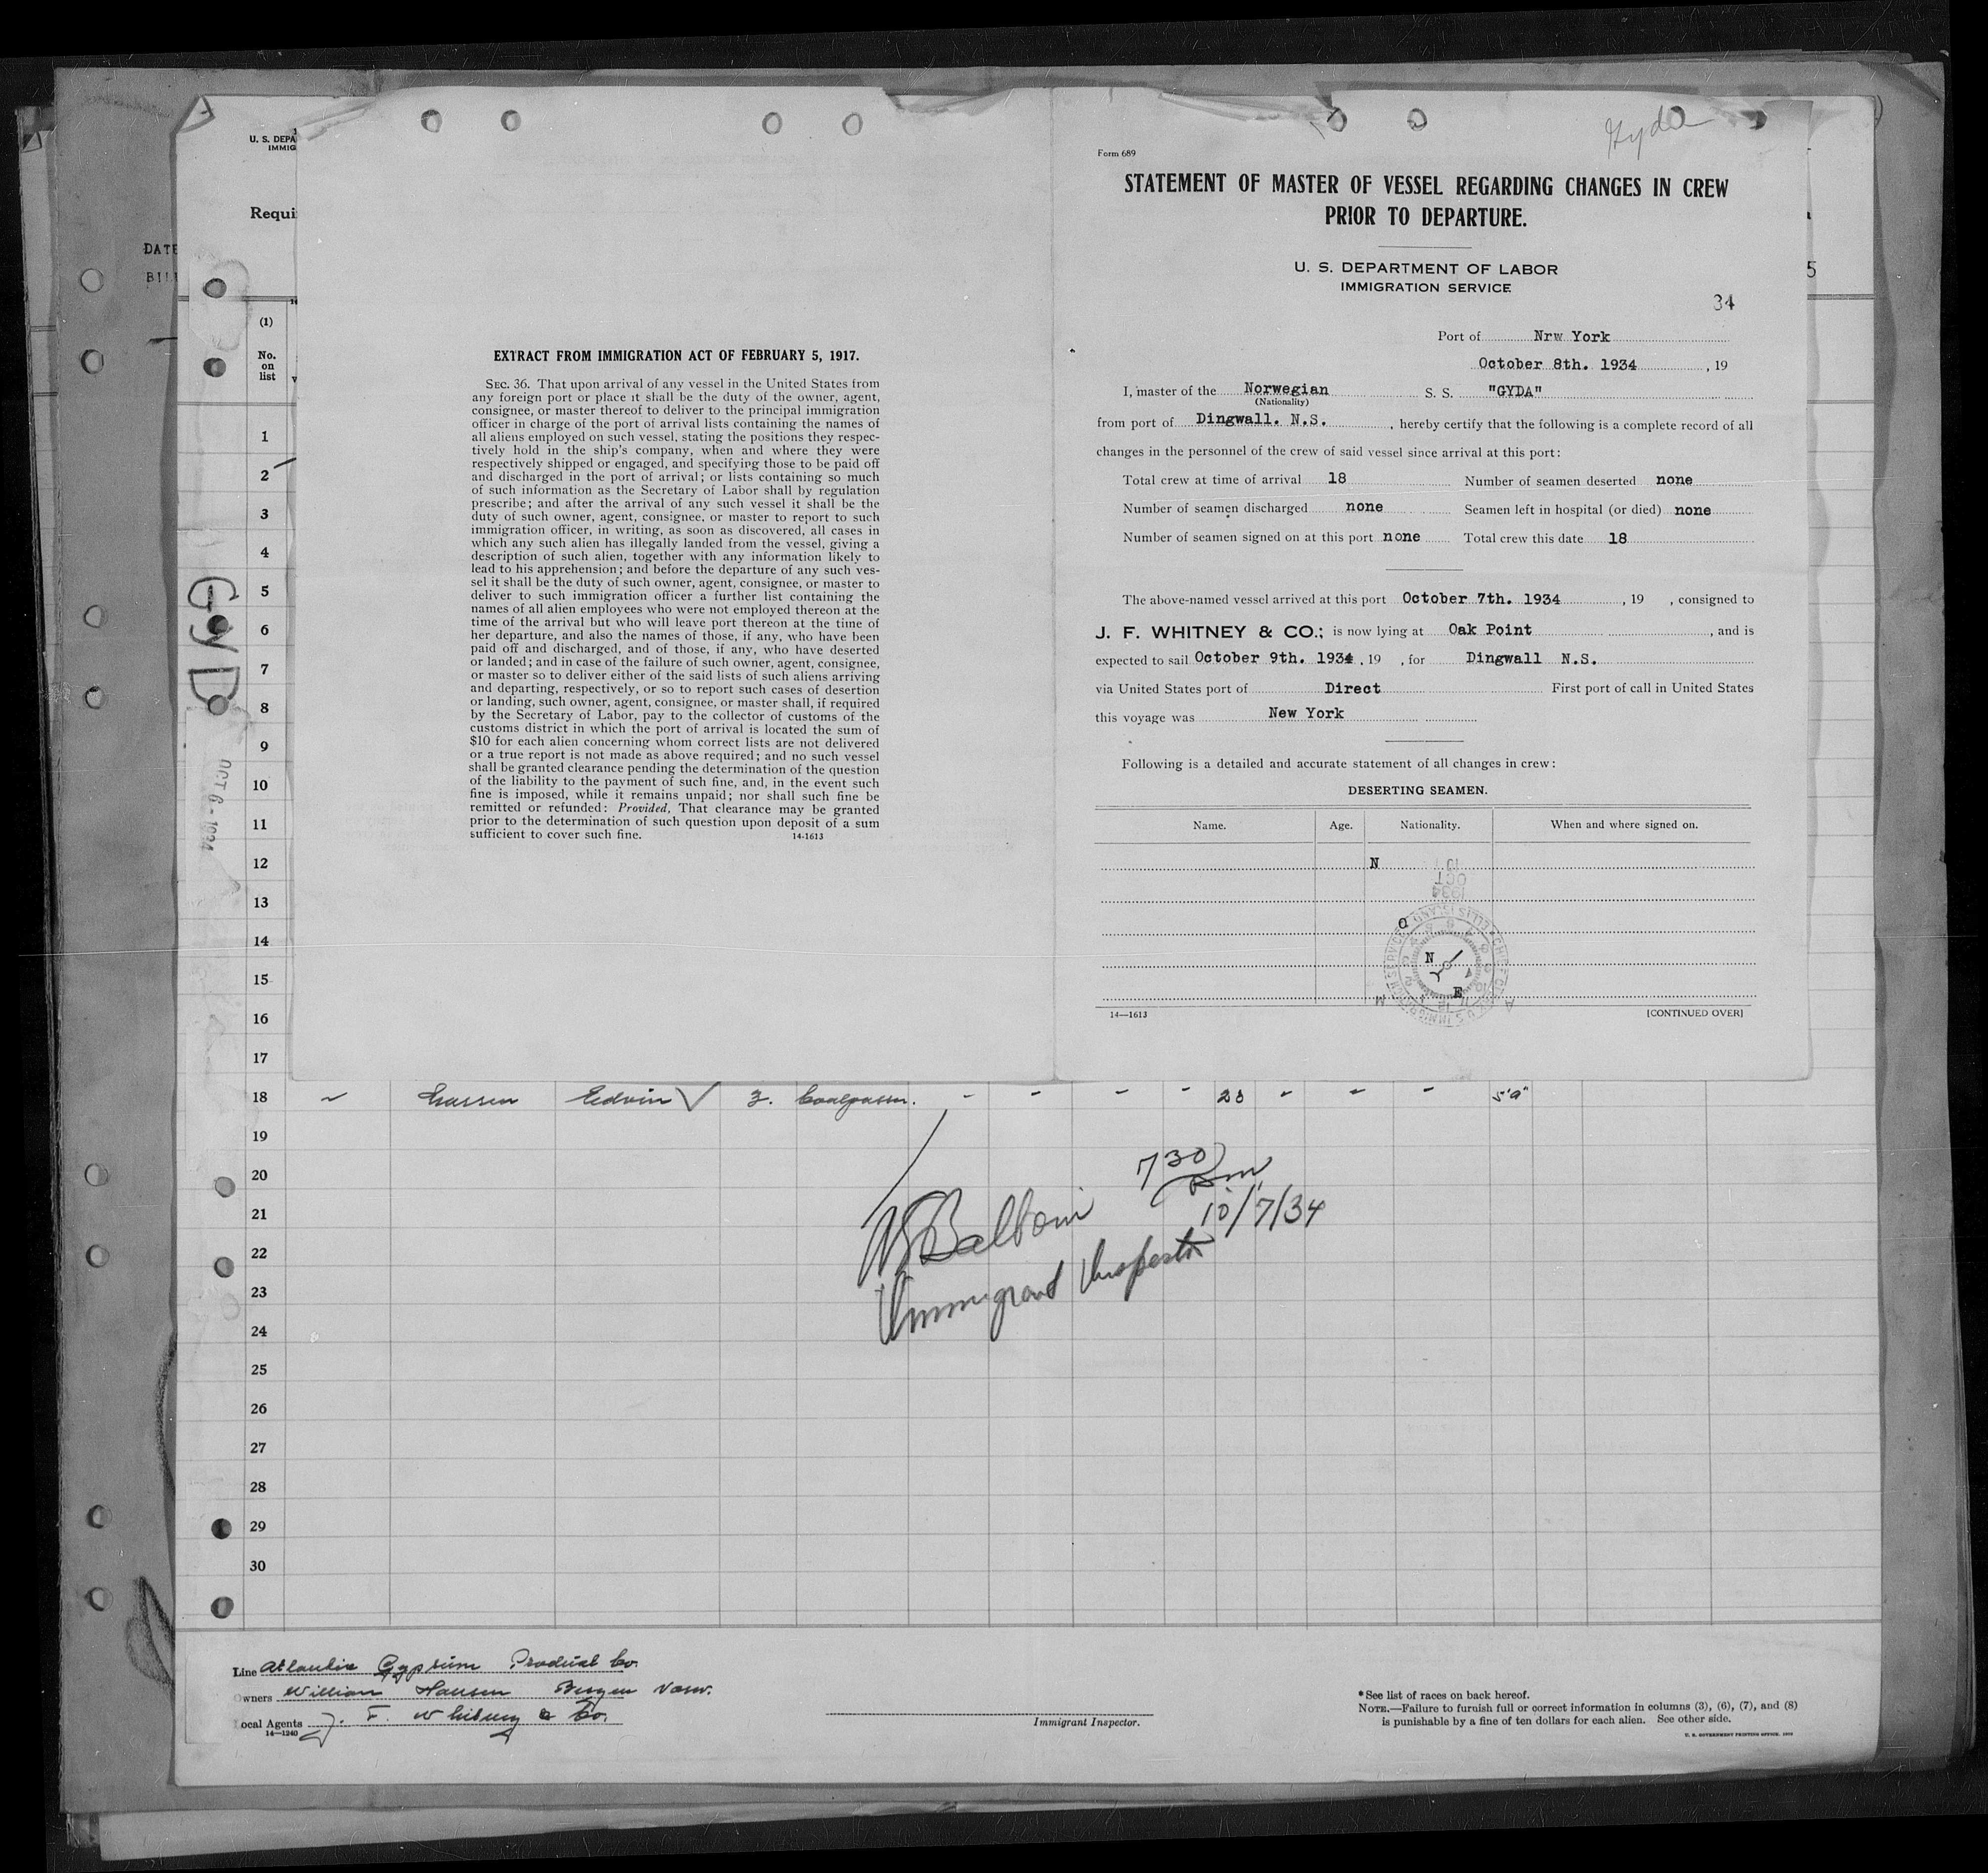 U. S. DEPA
IMMIG
Requi
DATE
BILL
(1)
No.
on
list
1
2
3
4
5
6
7
8
9
10
11
12
13
14
15
16
17
GYD
OCT 6 - 1934
EXTRACT FROM IMMIGRATION ACT OF FEBRUARY 5, 1917.
SEC. 36. That upon arrival of any vessel in the United States from
any foreign port or place it shall be the duty of the owner, agent,
consignee, or master thereof to deliver to the principal immigration
officer in charge of the port of arrival lists containing the names of
all aliens employed on such vessel, stating the positions they respec-
tively hold in the ship's company, when and where they were
respectively shipped or engaged, and specifying those to be paid off
and discharged in the port of arrival; or lists containing so much
of such information as the Secretary of Labor shall by regulation
prescribe; and after the arrival of any such vessel it shall be the
duty of such owner, agent, consignee, or master to report to such
immigration officer, in writing, as soon as discovered, all cases in
which any such alien has illegally landed from the vessel, giving a
description of such alien, together with any information likely to
lead to his apprehension; and before the departure of any such ves-
sel it shall be the duty of such owner, agent, consignee, or master to
deliver to such immigration officer a further list containing the
names of all alien employees who were not employed thereon at the
time of the arrival but who will leave port thereon at the time of
her departure, and also the names of those, if any, who have been
paid off and discharged, and of those, if any, who have deserted
or landed; and in case of the failure of such owner, agent, consignee,
or master so to deliver either of the said lists of such aliens arriving
and departing, respectively, or so to report such cases of desertion
or landing, such owner, agent, consignee, or master shall, if required
by the Secretary of Labor, pay to the collector of customs of the
customs district in which the port of arrival is located the sum of
$10 for each alien concerning whom correct lists are not delivered
or a true report is not made as above required; and no such vessel
shall be granted clearance pending the determination of the question
of the liability to the payment of such fine, and, in the event such
fine is imposed, while it remains unpaid; nor shall such fine be
remitted or refunded: Provided, That clearance may be granted
prior to the determination of such question upon deposit of a sum
sufficient to cover such fine. 14-1613
Gyda
Form 689
STATEMENT OF MASTER OF VESSEL REGARDING CHANGES IN CREW
PRIOR TO DEPARTURE.
U. S. DEPARTMENT OF LABOR
IMMIGRATION SERVICE
34
5
Port of Nrw York
October 8th. 1934, 19
I, master of the Norwegian S. S. "GYDA"
(Nationality)
from port of Dingwall. N.S., hereby certify that the following is a complete record of all
changes in the personnel of the crew of said vessel since arrival at this port:
Total crew at time of arrival 18 Number of seamen deserted none
Number of seamen discharged none Seamen left in hospital (or died) none
Number of seamen signed on at this port none Total crew this date 18
The above-named vessel arrived at this port October 7th. 1934, 19 , consigned to
J. F. WHITNEY & CO.; is now lying at Oak Point, and is
expected to sail October 9th. 1934, 19 , for Dingwall N.S.
via United States port of Direct First port of call in United States
this voyage was New York
Following is a detailed and accurate statement of all changes in crew:
DESERTING SEAMEN.
Name. Age. Nationality. When and where signed on.
N
O
N
E
OCT
1934
14—1613 [CONTINUED OVER]
18 Edwin 3. Coalpasser. 28 5'9"
19
20
21
22
23
24
25
26
27
28
29
30
730
am
10/7/34
Immigrant Inspector
Line Atlantic Gypsum Product Co.
Owners William Hansen Bergen Norw.
Local Agents J. F. Whitney & Co.
14—1240
Immigrant Inspector.
* See list of races on back hereof.
NOTE.—Failure to furnish full or correct information in columns (3), (6), (7), and (8)
is punishable by a fine of ten dollars for each alien. See other side.
U. S. GOVERNMENT PRINTING OFFICE